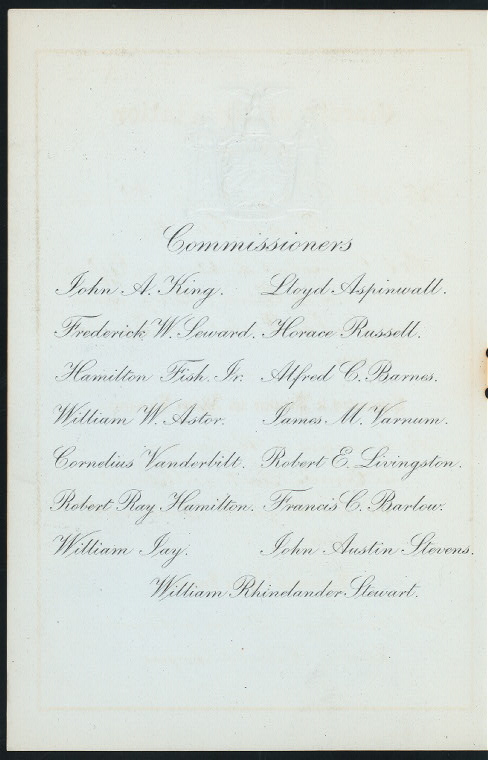 Commissioners
John A. King. Lloyd Aspinwall.
Frederick W. Seward. Horace Russell.
Hamilton Fish Jr. Alfred C. Barnes.
William W. Astor. James M. Varnum.
Cornelius Vanderbilt. Robert E. Livingston.
Robert Ray Hamilton. Francis C. Barlow.
William Jay. John Austin Stevens.
William Rhinelander Stewart.